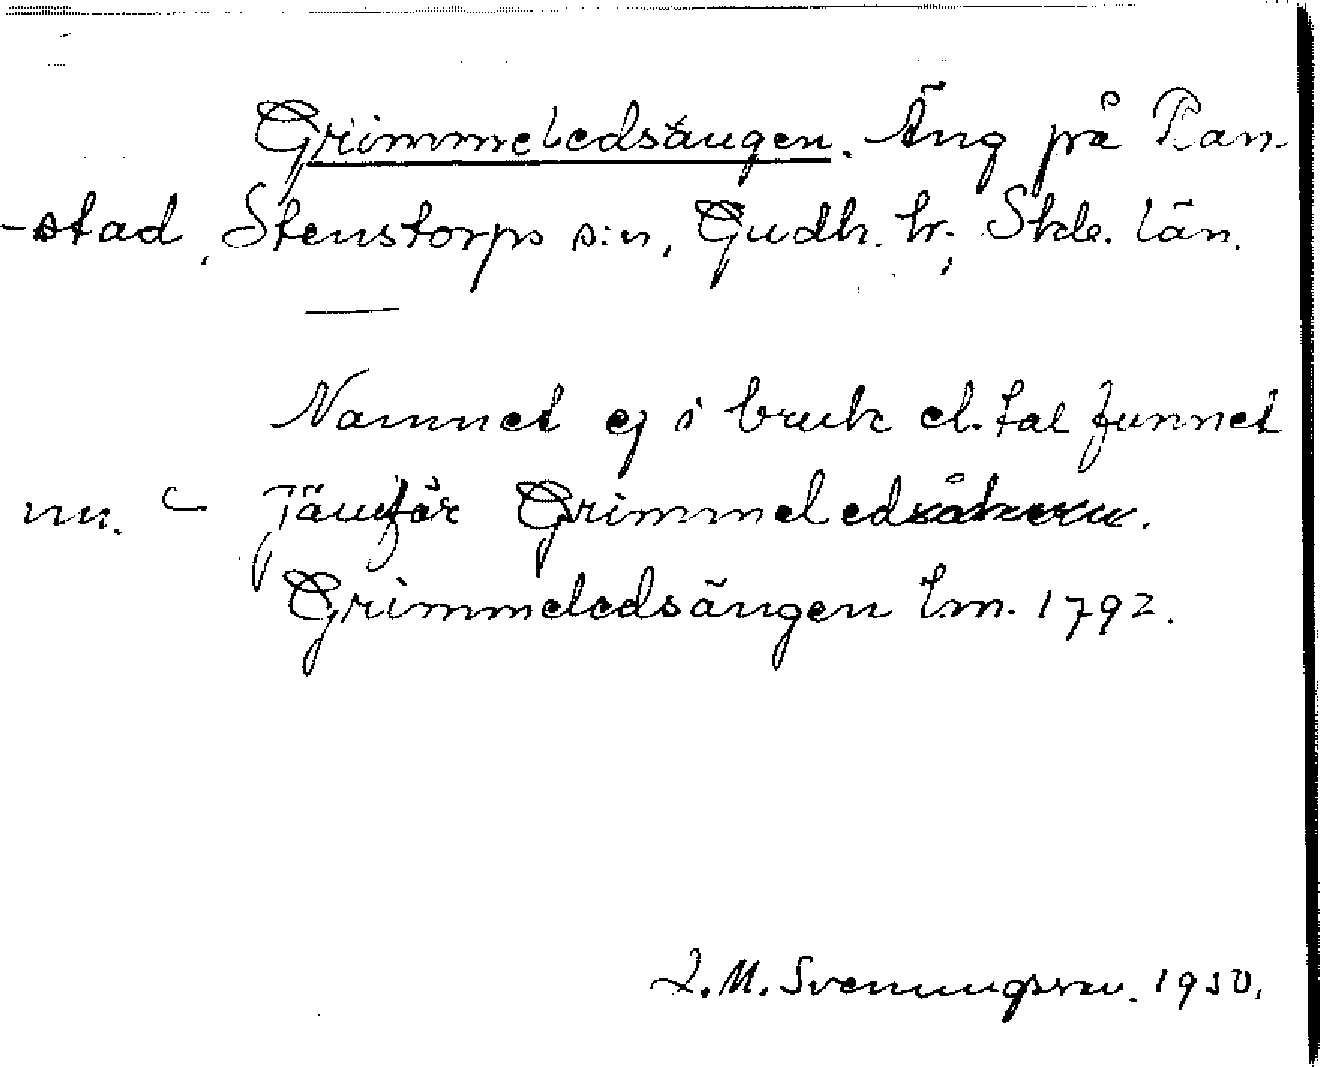 Grimmeledsängen. Äng på Ran-
-stad, Stenstorps s:n, Gudh. hr., Skb. län.
Namnet ej i bruk el. tal funnet
nu. – Jämför Grimmeledsåkern.
Grimmeledsängen Lm. 1792.
L. M. Svenungsson. 1930.